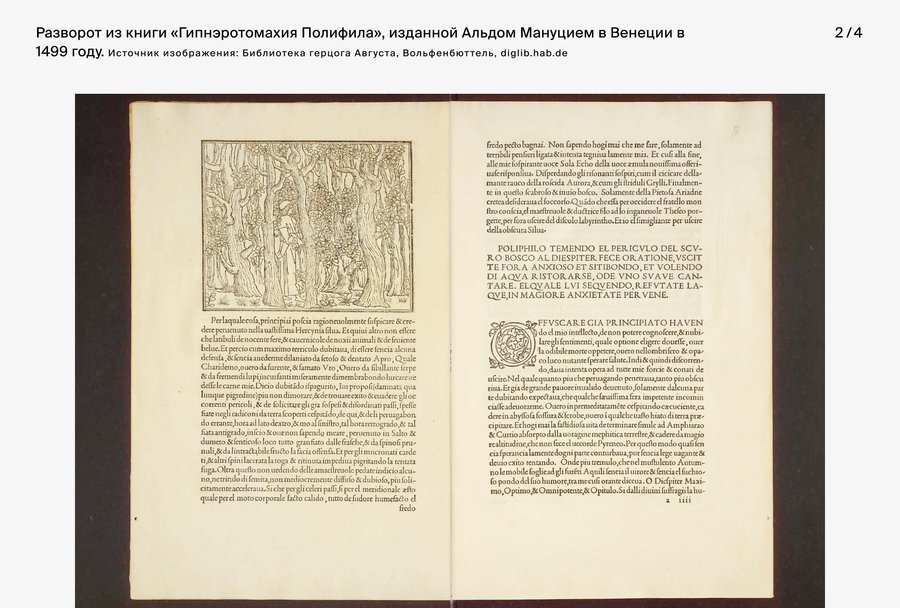 Разворот из книги «Гипнэротомахия Полифила», изданной Альдом Мануцием в Венеции в
1499 году. Источник изображения: Библиотека герцога Августа, Вольфенбюттель, diglib.hab.de
2 / 4
Per laquale cosa, principiai poscia ragioneuolmente suspicare & cre-
dere peruenuto nella uastissima Hercynia silua. Et quiui altro non essere
che latibuli de nocente fere, & cauernicole de noxii animali & de seuiente
belue. Et percio cum maximo terriculo dubitaua, di essere sencia alcuna
defensa,
& dentato Apro, Quale
Charidemo, ouero da furente, & famato Vro, Ouero da sibillante serpe
& da fremendi lupi incursanti miseramente dimembrabondo lurcare ue
desse le carne mie. Dicio dubitādo ispagurito, Iui proposi (damnata qua
lunque pigredine) piu non dimorare, & de trouare exito & euadere gli oc
correnti pericoli, & de solicitare gli gia sospesi & disordinati passi, spesse
fiate negli radiconi da terra scoperti cespitādo, de qui, & de li peruagabon
do errante, hora ad lato dextro, & mo al sinistro, tal hora retrogrado, & tal
fiata antigrado, inscio & oue non sapendo meare, peruenuto in Salto &
dumeto & senticoso loco tutto granfiato dalle frasche, & da spinosi pru-
nuli, & da lintractabile fructo la facia offensa. Et per gli mucronati carde
ti, & altri spini lacerata la toga & ritinuta impediua pigritando la tentata
fuga. Oltra questo non uedendo delle amaestreuole pedate indicio alcu-
no, ne tritulo di semita, non mediocremente diffuso & dubioso, piu soli-
citamente acceleraua. Si che per gli celeri passi, si per el meridionale æsto
quale per el moto corporale facto calido, tutto de sudore humefacto el
fredo
fredo pecto bagnai. Non sapendo hogi mai che me fare, solamente ad
terribili pensieri ligata & intenta tegniua la mente mia. Et cusi alla fine,
alle mie sospirante uoce Sola Echo della uoce æmula nouissima offeri-
uase risponsiua. Disperdando gli risonanti sospiri, cum il cicicare della-
mante rauco della roscida Aurora, & cum gli striduli Grylli. Finalmen-
te in questo scabroso & inuio bosco. Solamente della Pietosa Ariadne
cretea desideraua el soccorso. Quādo che essa per occidere el fratello mon
stro conscia, el maestreuole & ductrice filo ad lo inganeuole Theseo por-
gette, per fora uscire del discolo labyrintho. Et io el simigliante per uscire
della obscura Silua.
POLIPHILO TEMENDO EL PERICVLO DEL SCV-
RO BOSCO AL DIESPITER FECE ORATIONE, VSCIT
TE FORA ANXIOSO ET SITIBONDO, ET VOLENDO
DI AQVA RISTORARSE, ODE VNO SVAVE CAN-
TARE. EL QVALE LVI SEQVENDO, REFVTATE LA-
QVE, IN MAGIORE ANXIETATE PERVENE.
OFFVSCARE GIA PRINCIPIATO HAVEN
do el mio intellecto, de non potere cognoscere, & nubi-
lare gli sentimenti, quale optione eligere douesse, ouer
la odibile morte oppetere, ouero nellombrifero & opa-
co luco nutante sperare salute. Indi & quindi discorren-
do, daua intenta opera ad tutte mie forcie & conati de
uscire. Nel quale quanto piu che peruagando penetraua, tanto piu obscu
riua. Et gia de grande pauore inualido deuenuto, solamente dalcuna par
te dubitando expectaua, che qualche sæuissima fera impetente incomin
ciasse adeuorarme. Ouero impremeditatamēte cespitando cæcuciente, ca
dere in abyssosa fossura & scrobe, ouero i qualche uasto hiato di terra præ-
cipitare. Et hogi mai la fastidiosa uita determinare simile ad Amphiarao
& Curtio absorpto dalla uoragine mephitica terrestre, & cadere da magio
re altitudine, che non fece el uecorde Pyreneo. Per questo modo quasi sen
cia sperancia la mente dogni parte conturbaua, pur sencia lege uagante &
deuio exito tentando. Onde piu tremulo, che nel mustulento Autum-
no le mobile foglie
O Diespiter Maxi-
mo, Optimo, & Omnipotente, & Opitulo. Si dalli diuini suffragii la hu-
a iiii